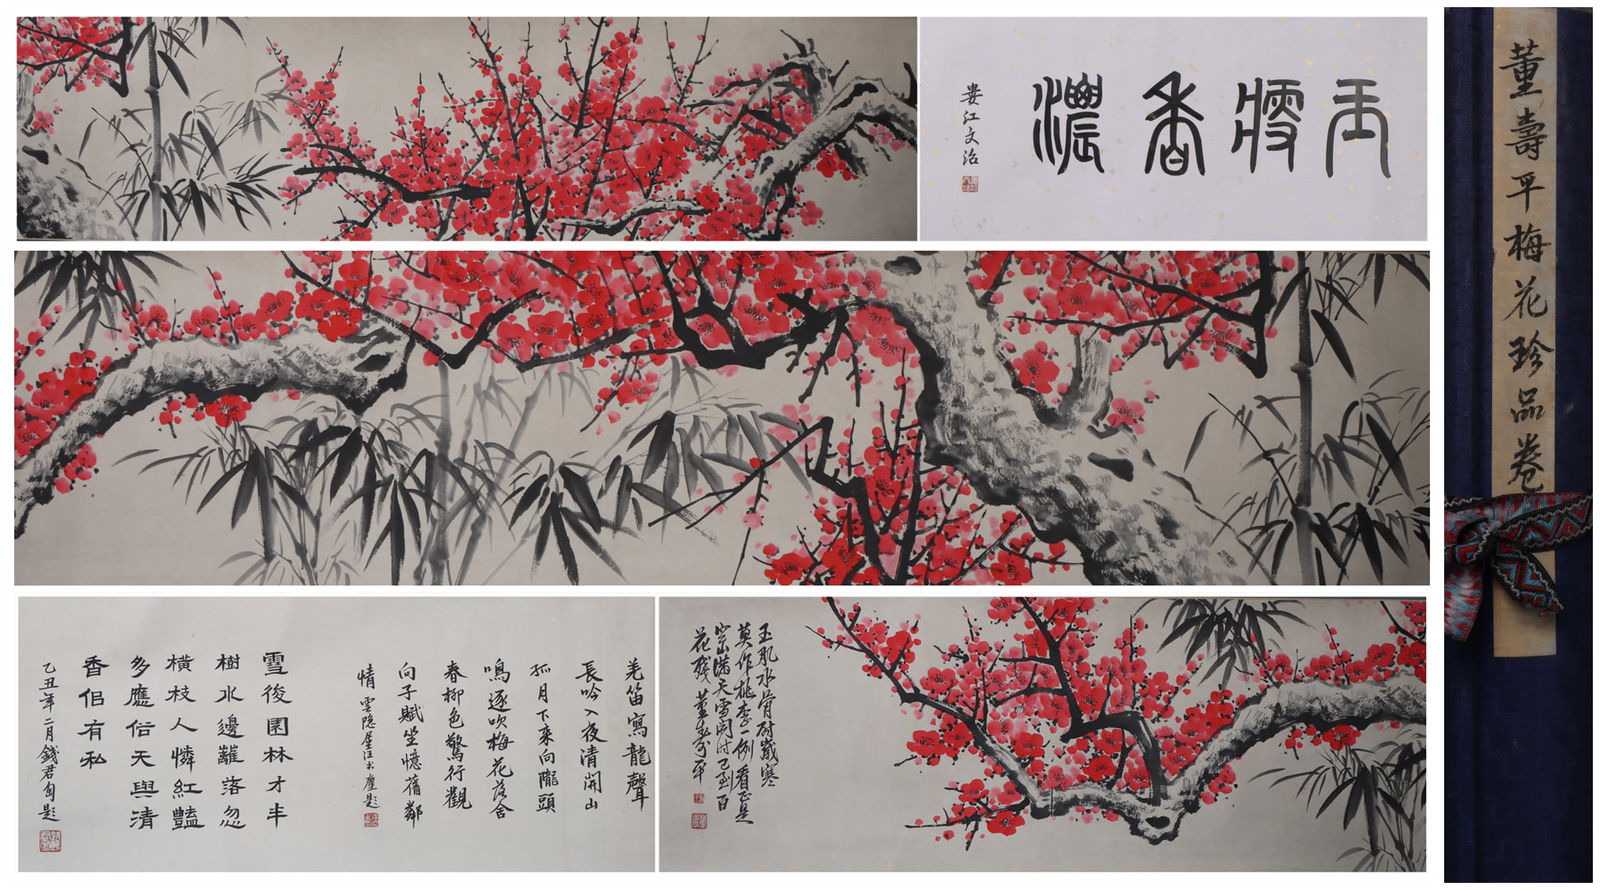 董壽平梅花珍品卷
玉瘦香濃
婁江文治
玉肌冰骨耐歲寒
莫作桃李一例看正是
滿天雪開時已到百
花殘 董壽平
羌笛寫龍聲
長吟入夜清關山
孤月下來向隴頭
鳴逐吹梅花落含
春柳色驚行觀
向子賦坐憶舊鄰
情 雲隐 題
雪後園林才半
樹水邊籬落忽
橫枝人憐紅豔
多應俗天與清
香佀有私
乙丑年二月錢君匋題